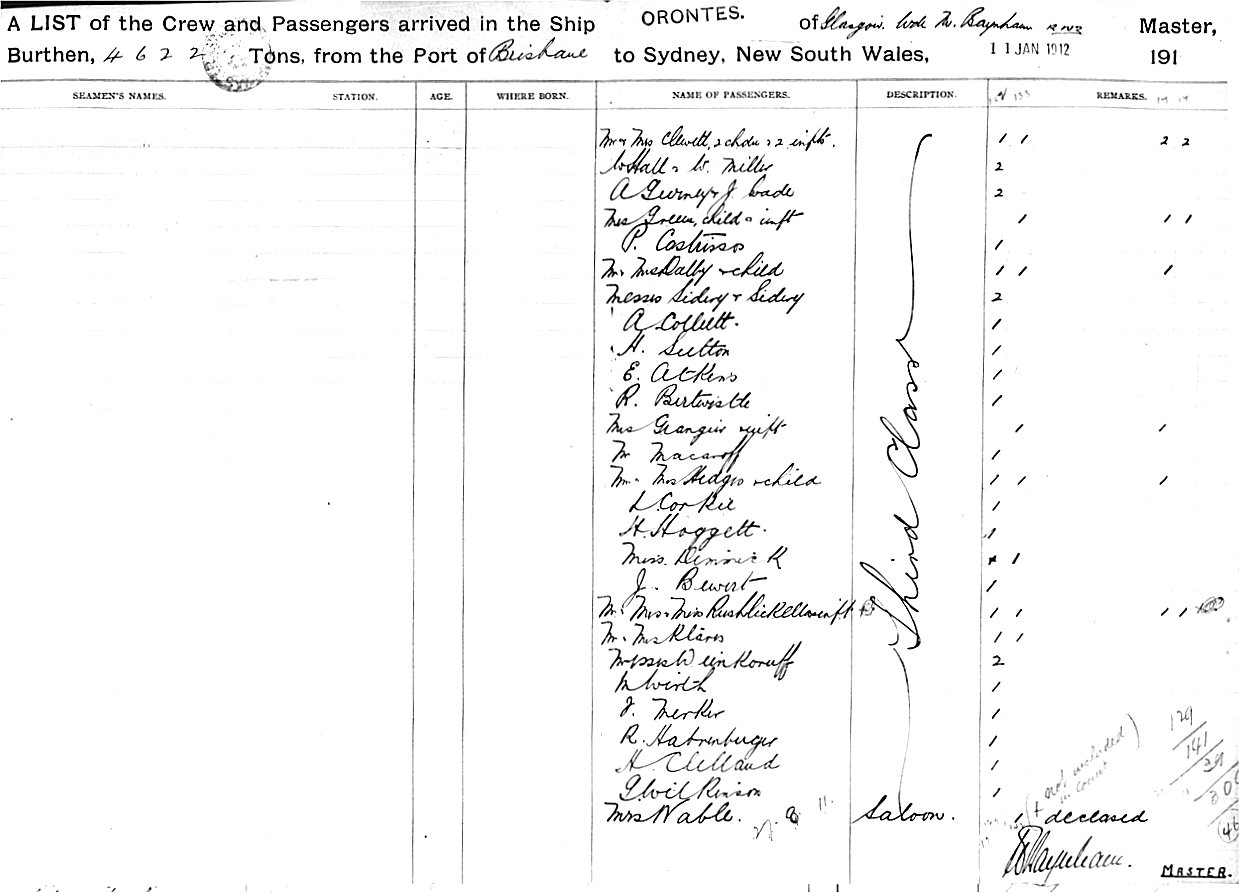 A LIST of the Crew and Passengers arrived in the Ship ORONTES. of Glasgow, Wm M. Baynham RNR Master,
Burthen, 4622 Tons, from the Port of Brisbane to Sydney, New South Wales, 11 JAN 1912 191
SEAMEN'S NAMES. STATION. AGE. WHERE BORN. NAME OF PASSENGERS. DESCRIPTION. REMARKS.
Mr & Mrs Clewett, 2 chdn & 2 infts. 1 1 2 2
W Hall & W. Miller 2
A Gurney & J. Wade 2
Mrs Green, child & inft 1 1 1
P. Castrissos 1
Mr & Mrs Dalby & child 1 1 1
Messrs Sidery & Sidery 2
A Collett. 1
H. Sutton 1
E. Atkens 1
R. Bertwistle 1
Mrs Grangier & inft 1 1
Mr Macaroff 1
Mr & Mrs Hedges & child 1 1 1
L. Corkie 1
H. Hoggett. 1
Miss. Dimmick 1
J. Bewert 1
Mr & Mrs & Miss 1 1 1 1
Mr & Mrs Klares 1 1
Messrs Weinkoruff 2
M Wirth 1
J. Merker 1
R. Habrenberger 1
H. Clelland 1
G. Wilkinson 1
Third Class
Mrs Nable. 8 11. Saloon. 1 deceased
(+ not included in count)
129
141
29
46
Baynham.
MASTER.